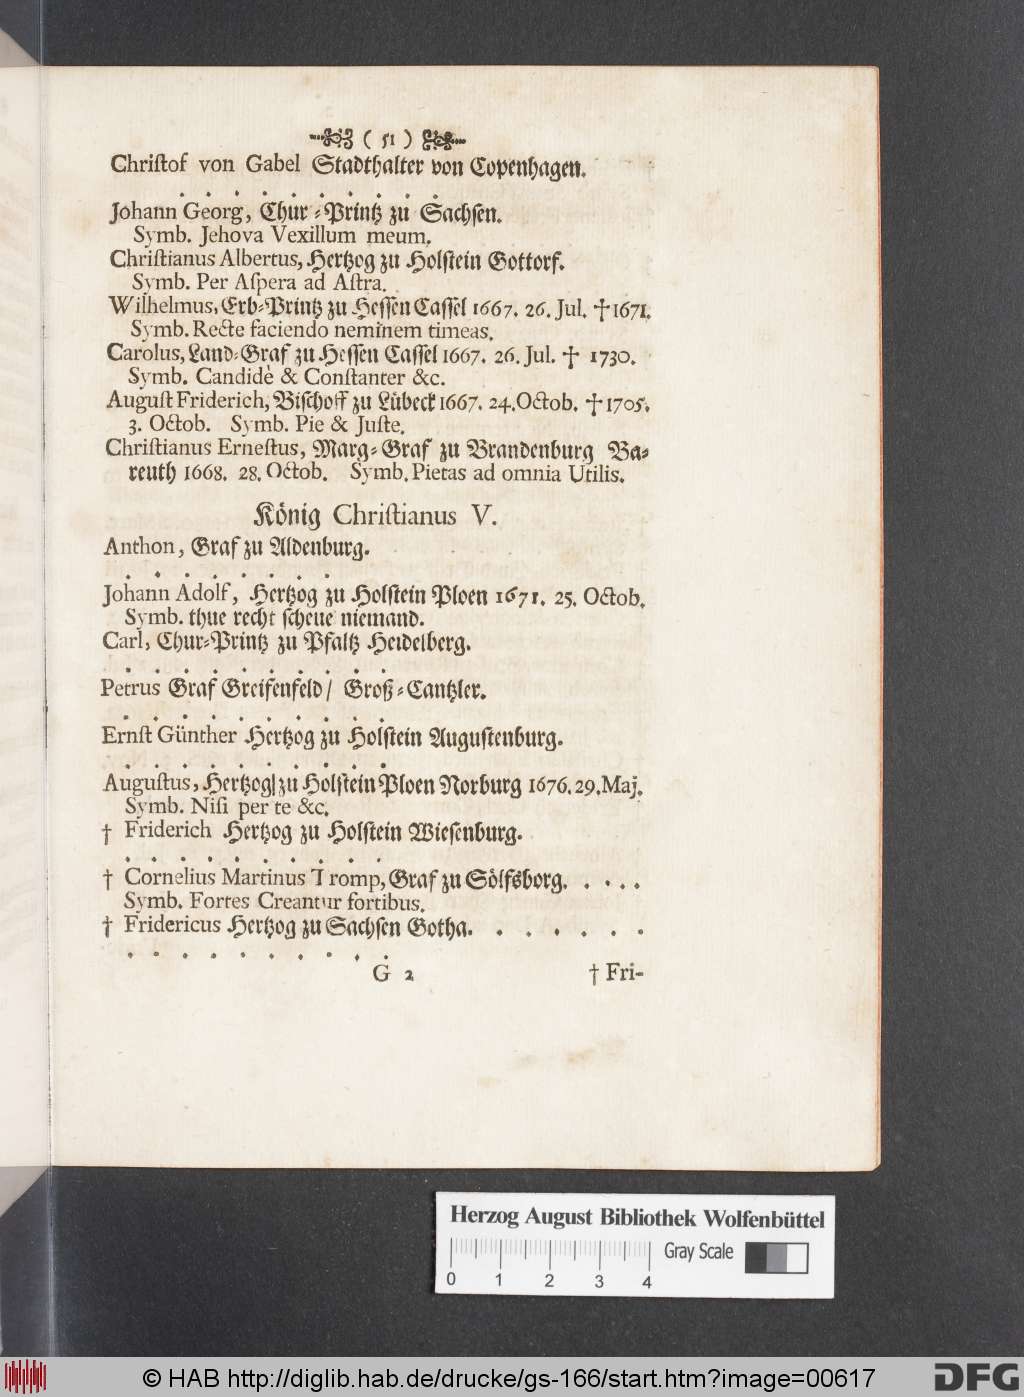 ( 51 )
Christof von Gabel Stadthalter von Copenhagen.
. . . . . . . . . .
Johann Georg, Chur-Printz zu Sachsen.
Symb. Jehova Vexillum meum.
Christianus Albertus, Hertzog zu Holstein Gottorf.
Symb. Per Aſpera ad Aſtra.
Wilhelmus, Erb-Printz zu Hessen Cassel 1667. 26. Jul. ✝1671.
Symb. Recte faciendo neminem timeas.
Carolus, Land-Graf zu Hessen Cassel 1667. 26. Jul. ✝ 1730.
Symb. Candidè & Conſtanter &c.
August Friderich, Bischoff zu Lübeck 1667. 24. Octob. ✝1705.
3. Octob. Symb. Pie & Juſte.
Chriſtianus Erneſtus, Marg-Graf zu Brandenburg Ba-
reuth 1668. 28. Octob. Symb. Pietas ad omnia Utilis.
König Chriſtianus V.
Anthon, Graf zu Aldenburg.
. . . . . . . .
Johann Adolf, Hertzog zu Holstein Ploen 1671. 25. Octob.
Symb. thue recht scheue niemand.
Carl, Chur-Printz zu Pfaltz Heidelberg.
. . . . . . . . . .
Petrus Graf Greifenfeld/ Groß-Cantzler.
. . . . . . . . . .
Ernſt Günther Hertzog zu Holstein Augustenburg.
. . . . . . . . . .
Auguſtus, Hertzog zu Holstein Ploen Norburg 1676. 29. Maj.
Symb. Niſi per te &c.
† Friderich Hertzog zu Holstein Wiesenburg.
. . . . . . . . . .
† Cornelius Martinus Tromp, Graf zu Sölfsborg. . . . .
Symb. Fortes Creantur fortibus.
† Fridericus Hertzog zu Sachsen Gotha. . . . . . .
. . . . . . . . . .
G 2 † Fri-
Herzog August Bibliothek Wolfenbüttel
Gray Scale
0 1 2 3 4
© HAB http://diglib.hab.de/drucke/gs-166/start.htm?image=00617
DFG